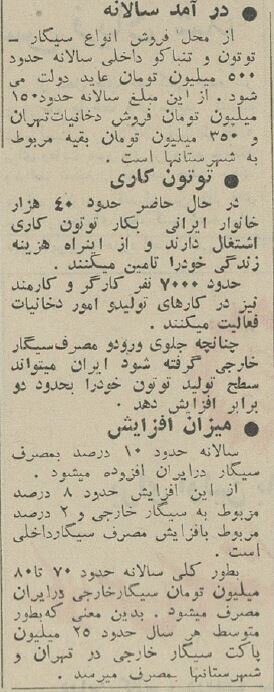 ● در آمد سالانه
از محل فروش انواع سیگار ـ
توتون و تنباکو داخلی سالانه حدود
۵۰۰ میلیون تومان عاید دولت می
شود . از این مبلغ سالانه حدود۱۵۰
میلیون تومان فروش دخانیات‌تهران
و ۳۵۰ میلیون تومان بقیه مربوط
به شهرستانها است .
● توتون کاری
در حال حاضر حدود ۴۰ هزار
خانوار ایرانی بکار توتون کاری
اشتغال دارند و از اینراه هزینه
زندگی خودرا تامین میکنند .
حدود ۷۰۰۰ نفر کارگر و کارمند
نیز در کارهای تولیدو امور دخانیات
فعالیت میکنند .
چنانچه جلوی ورودو مصرف‌سیگار
خارجی گرفته شود ایران میتواند
سطح تولید توتون خودرا بحدود دو
برابر افزایش دهد .
● میزان افزایش
سالانه حدود ۱۰ درصد بمصرف
سیگار درایران افزوده میشود .
از این افزایش حدود ۸ درصد
مربوط به سیگار خارجی و ۲ درصد
مربوط بافزایش مصرف سیگارداخلی
است .
بطور کلی سالانه حدود ۷۰ تا۸۰
میلیون تومان سیگارخارجی درایران
مصرف میشود . بدین معنی که‌بطور
متوسط هر سال حدود ۲۵ میلیون
پاکت سیگار خارجی در تهران و
شهرستانها بمصرف میرسد .